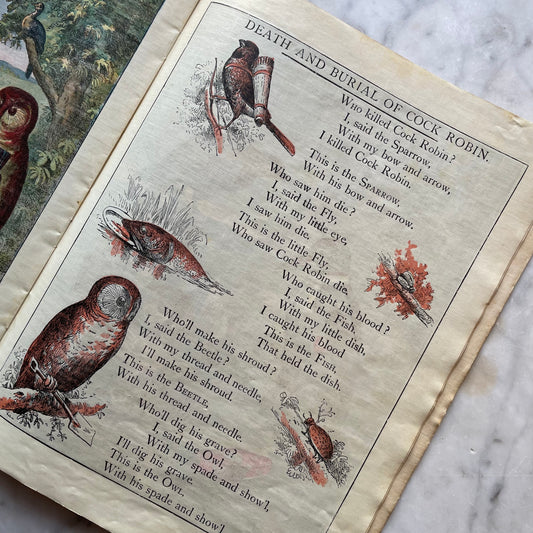 DEATH AND BURIAL OF COCK ROBIN.
Who killed Cock Robin?
I, said the Sparrow,
With my bow and arrow,
I killed Cock Robin.
This is the SPARROW,
With his bow and arrow.
Who saw him die?
I, said the Fly,
With my little eye,
I saw him die.
This is the little Fly,
Who saw Cock Robin die.
Who caught his blood?
I, said the Fish,
With my little dish,
I caught his blood
This is the FISH,
That held the dish.
Who'll make his shroud?
I, said the Beetle,
With my thread and needle,
I'll make his shroud.
This is the BEETLE,
With his thread and needle.
Who'll dig his grave?
I, said the Owl,
With my spade and show'l,
I'll dig his grave.
This is the OWL,
With his spade and show'l,